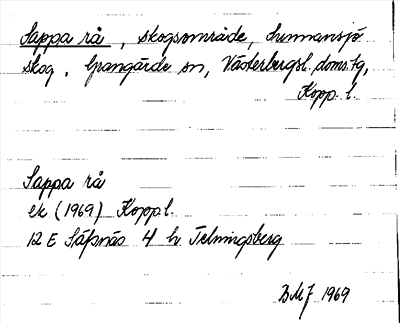 Sappa rå, skogsområde, Sunnansjö
skog, Grangärde sn, Västerbergsl. doms. tg,
Kopp. l.
Sappa rå
ek (1969) Kopp l.
12 E Säfsnäs 4 h
BMJ 1969